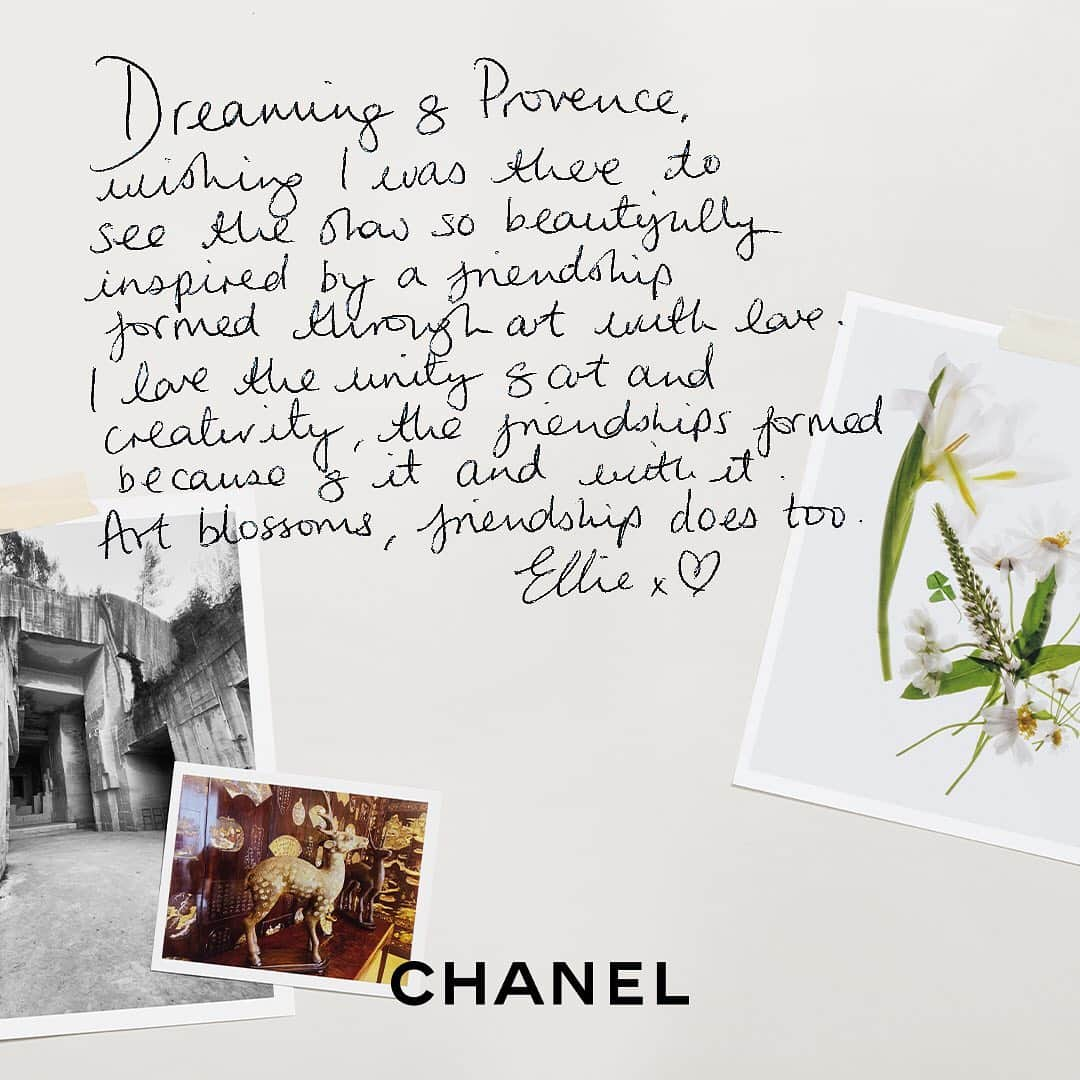 Dreaming of Provence,
wishing I was there to
see the show so beautifully
inspired by a friendship
formed through art with love.
I love the unity of art and
creativity, the friendships formed
because of it and with it.
Art blossoms, friendship does too.
Ellie x ♡
CHANEL